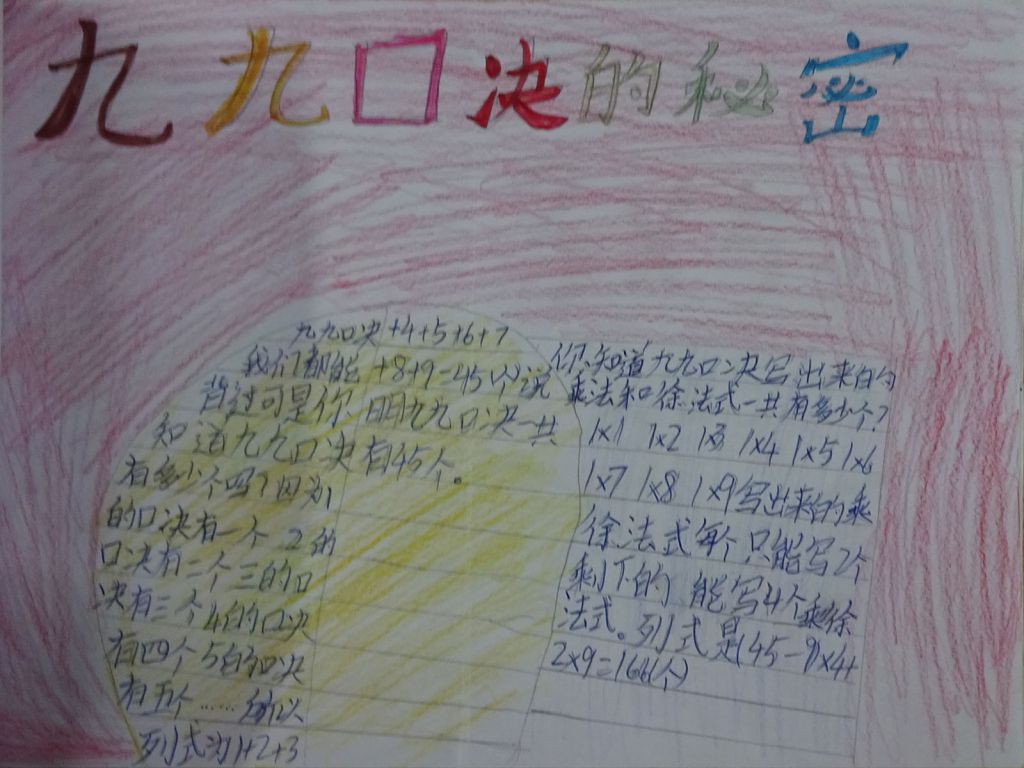 九九口决的秘密
九九口决
我们都能
背过可是你
知道九九口决
有多少个吗?因为1
的口决有一个 2的
口决有二个三的口
决有三个4的口决
有四个5的口决
有五个……所以
列式为1+2+3
+4+5+6+7
+8+9=45(个)说
明九九口决一共
有45个。
你知道九九口决写出来的
乘法和徐法式一共有多少个?
1×1 1×2 1×3 1×4 1×5 1×6
1×7 1×8 1×9写出来的乘
徐法式每个只能写2个
剩下的 能写4个乘徐
法式。列式是(45-9)×4+
2×9=166(个)